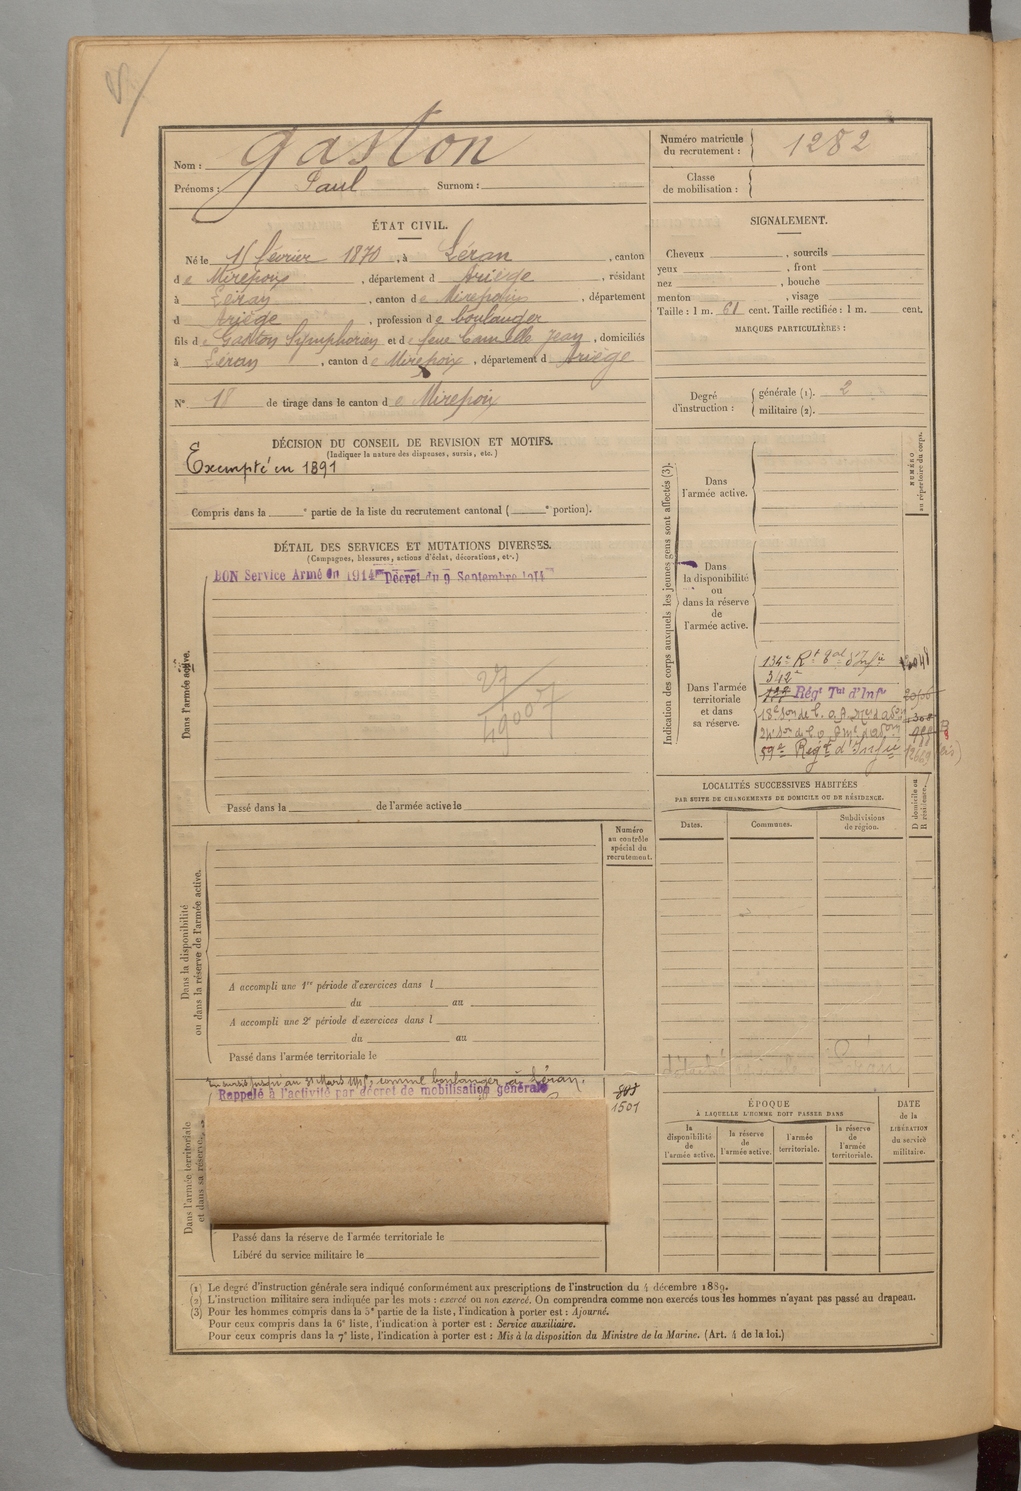 Nom : Gaston
Prénoms : Paul Surnom :
Numéro matricule du recrutement : 1282
Classe de mobilisation :
ÉTAT CIVIL.
Né le 15 février 1870, à Léran, canton
de Mirepoix, département d Ariège, résidant
à Léran, canton de Mirepoix, département
d Ariège, profession de boulanger
fils de Gaston Symphorien et de feue Camille Jean, domiciliés
à Léran, canton de Mirepoix, département d Ariège
N° 18 de tirage dans le canton de Mirepoix
SIGNALEMENT.
Cheveux , sourcils
yeux , front
nez , bouche
menton , visage
Taille : 1 m. 61 cent. Taille rectifiée : 1 m. cent.
MARQUES PARTICULIÈRES :
Degré d'instruction : générale (1). 2
militaire (2).
DÉCISION DU CONSEIL DE REVISION ET MOTIFS.
(Indiquer la nature des dispenses, sursis, etc.)
Exempté en 1891
Compris dans la e partie de la liste du recrutement cantonal ( e portion).
DÉTAIL DES SERVICES ET MUTATIONS DIVERSES.
(Campagnes, blessures, actions d'éclat, décorations, etc.)
BON Service Armé en 1914 Décret du 9 Septembre 1914
Dans l'armée active.
27
49007
Passé dans la de l'armée active le
Indication des corps auxquels les jeunes gens sont affectés (3).
NUMÉRO au répertoire du corps.
Dans l'armée active.
Dans la disponibilité ou dans la réserve de l'armée active.
Dans l'armée territoriale et dans sa réserve.
134e Rt d'Infie
342e
Régt Tal d'Infie
59e Regt d'Infie
LOCALITÉS SUCCESSIVES HABITÉES
PAR SUITE DE CHANGEMENTS DE DOMICILE OU DE RÉSIDENCE.
Dates.
Communes.
Subdivisions de région.
D domicile ou R résidence.
Numéro au contrôle spécial du recrutement.
Dans la disponibilité ou dans la réserve de l'armée active.
A accompli une 1re période d'exercices dans l
du au
A accompli une 2e période d'exercices dans l
du au
Passé dans l'armée territoriale le
comme boulanger à Léran.
Rappelé à l'activité par décret de mobilisation générale
1501
Dans l'armée territoriale et dans sa réserve.
Passé dans la réserve de l'armée territoriale le
Libéré du service militaire le
ÉPOQUE
À LAQUELLE L'HOMME DOIT PASSER DANS
la disponibilité de l'armée active.
la réserve de l'armée active.
l'armée territoriale.
la réserve de l'armée territoriale.
DATE de la LIBÉRATION du service militaire.
(1) Le degré d'instruction générale sera indiqué conformément aux prescriptions de l'instruction du 4 décembre 1889.
(2) L'instruction militaire sera indiquée par les mots : exercé ou non exercé. On comprendra comme non exercés tous les hommes n'ayant pas passé au drapeau.
(3) Pour les hommes compris dans la 5e partie de la liste, l'indication à porter est : Ajourné.
Pour ceux compris dans la 6e liste, l'indication à porter est : Service auxiliaire.
Pour ceux compris dans la 7e liste, l'indication à porter est : Mis à la disposition du Ministre de la Marine. (Art. 4 de la loi.)